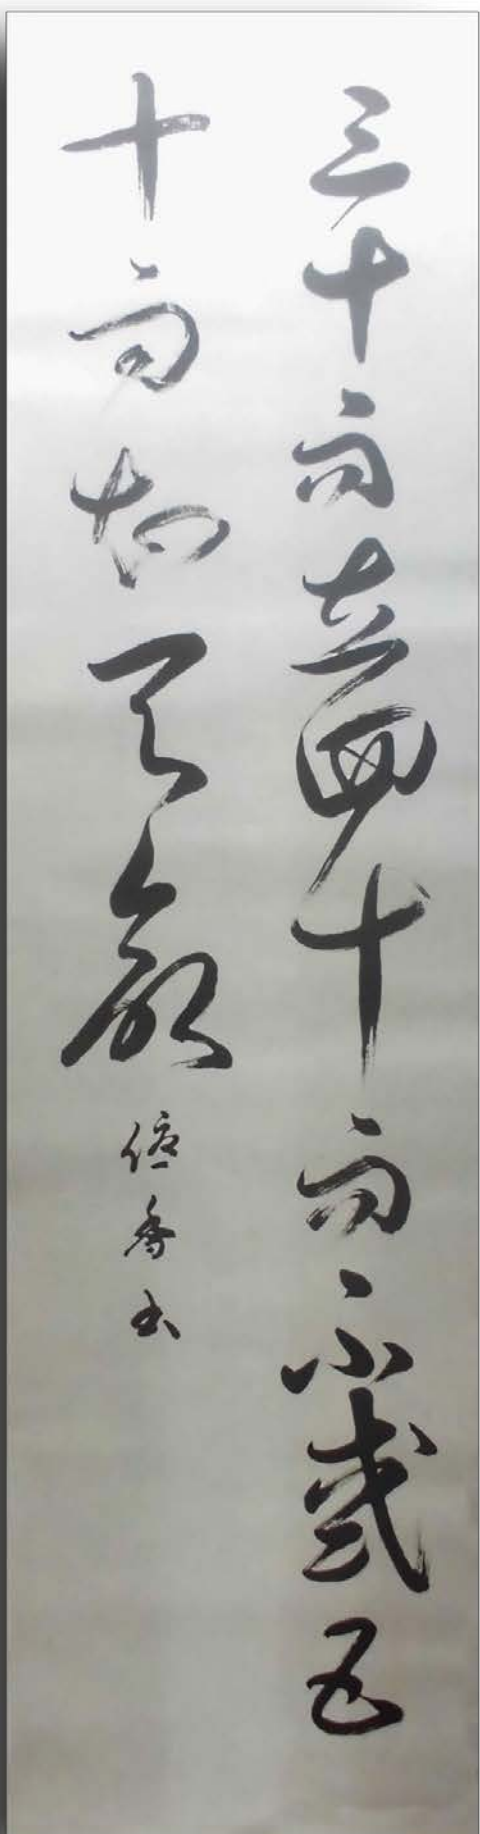 三十而立四十而不惑五
十而知天命
香書